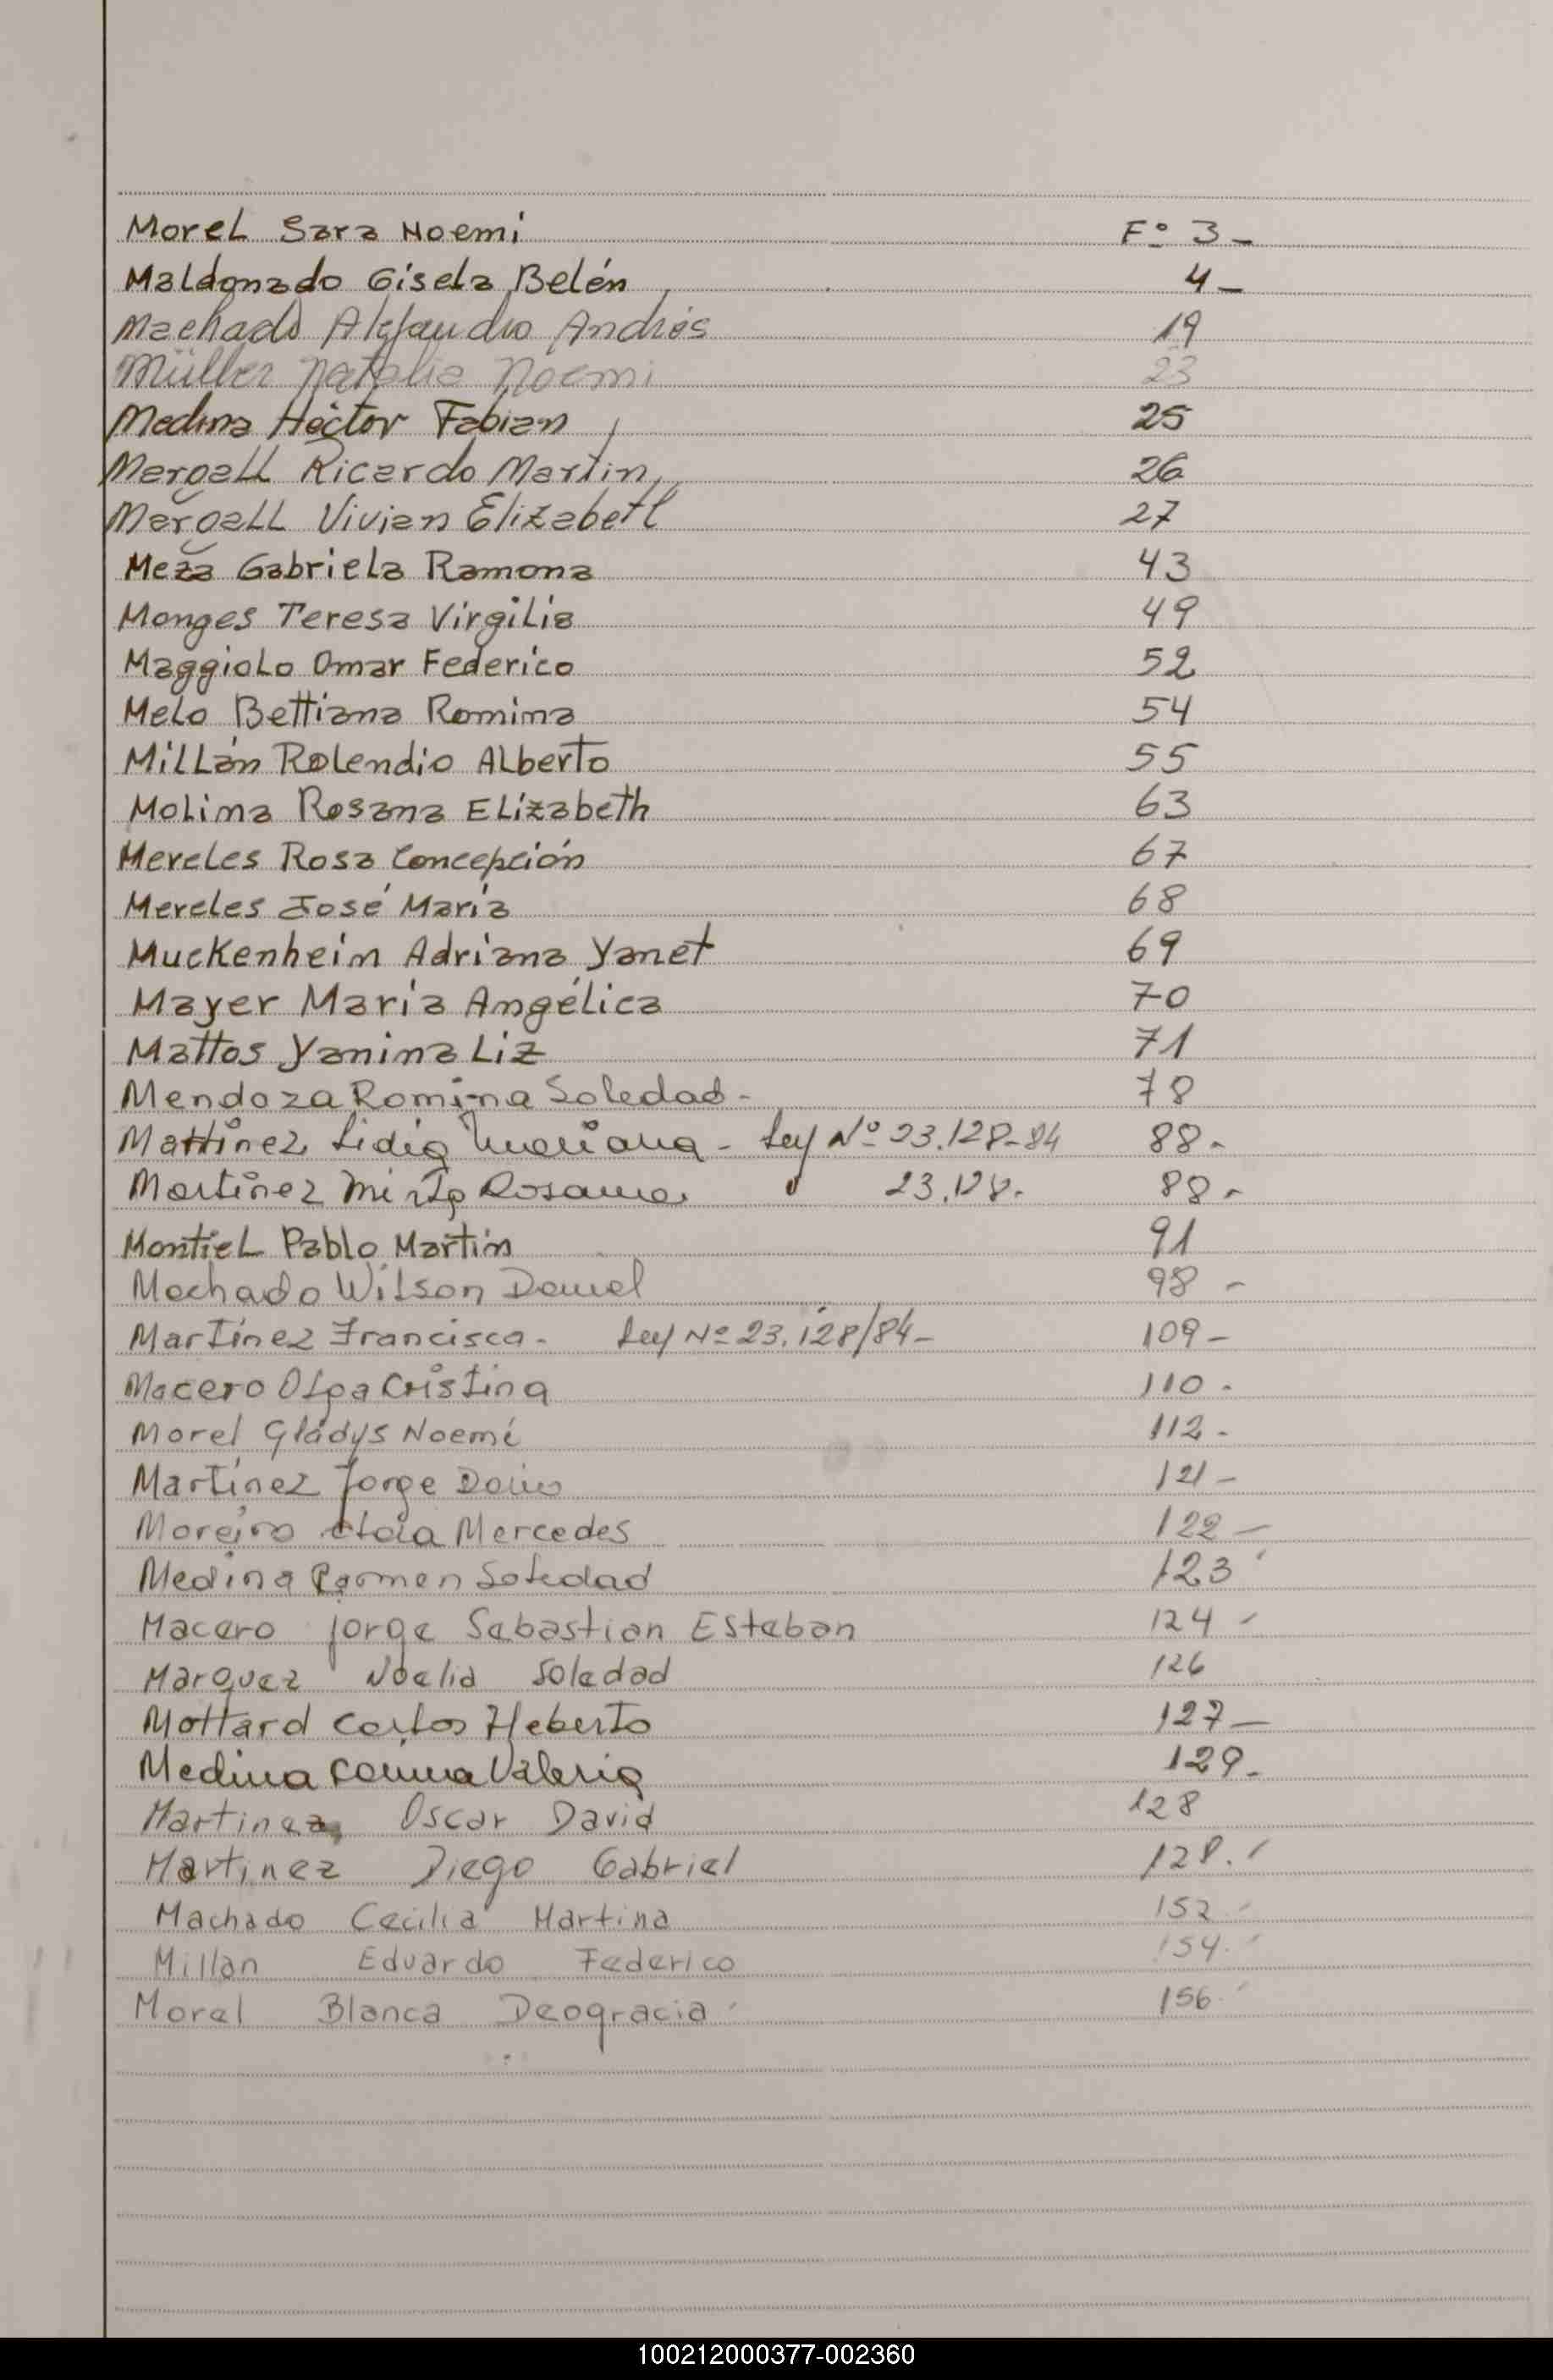 Morel Sara Noemi Fº 3-
Maldonado Gisela Belén 4-
Machado Alejandro Andrés 19
Müller Natalia Noemi 23
Medina Héctor Fabian 25
Margall Ricardo Martín 26
Margall Vivian Elizabeth 27
Meza Gabriela Ramona 43
Monges Teresa Virgilia 49
Maggiolo Omar Federico 52
Melo Bettiana Romina 54
Millán Rolendio Alberto 55
Molina Rosana Elizabeth 63
Mereles Rosa Concepción 67
Mereles José María 68
Muckenheim Adriana Yanet 69
Mayer María Angélica 70
Mattos Yanina Liz 71
Mendoza Romina Soledad - 78
Martinez Lidia Mariana - Ley Nº 23.128-84 88-
Martinez Mirta Rosana 23.128- 88-
Montiel Pablo Martín 91
Machado Wilson Daniel 98 -
Martínez Francisca - Ley Nº 23.128/84- 109-
Macero Olga Cristina 110 -
Morel Gladys Noemí 112 -
Martínez Jorge Dario 121-
Moreiro Mercedes 122-
Medina Carmen Soledad 123
Macero Jorge Sebastian Esteban 124 -
Marquez Noelia Soledad 126
Mottard Carlos Heberto 127-
Medina Valeria 129-
Martinez Oscar David 128
Martinez Diego Gabriel 128.
Machado Cecilia Martina 152 -
Millan Eduardo Federico 154.
Morel Blanca Deogracia 156.
100212000377-002360